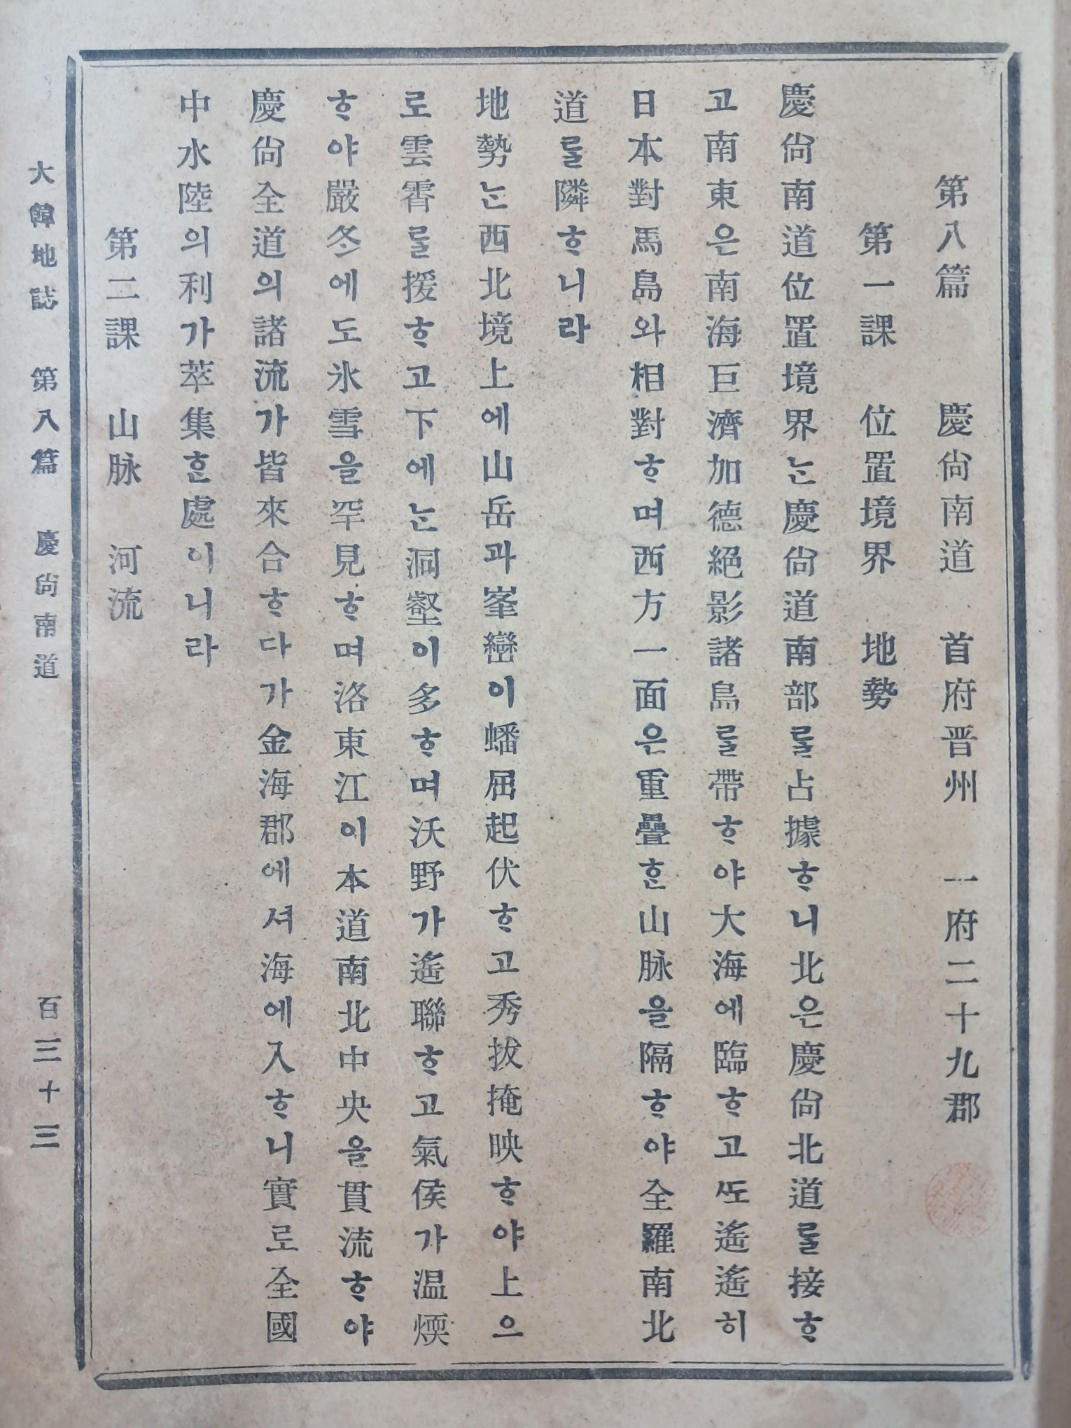 第八篇 慶尙南道 首府晋州 一府二十九郡
第一課 位置境界 地勢
慶尙南道位置境界ᄂᆞᆫ慶尙道南部ᄅᆞᆯ占據ᄒᆞ니北은慶尙北道ᄅᆞᆯ接ᄒᆞ
고南東은南海巨濟加德絕影諸島ᄅᆞᆯ帶ᄒᆞ야大海에臨ᄒᆞ고ᄯᅩ遙遙히
日本對馬島와相對ᄒᆞ며西方一面은重疊ᄒᆞᆫ山脉을隔ᄒᆞ야全羅南北
道ᄅᆞᆯ隣ᄒᆞ니라
地勢ᄂᆞᆫ西北境上에山岳과峯巒이蟠屈起伏ᄒᆞ고秀拔掩映ᄒᆞ야上으
로雲霄ᄅᆞᆯ援ᄒᆞ고下에ᄂᆞᆫ洞壑이多ᄒᆞ며沃野가遙聯ᄒᆞ고氣侯가温煗
ᄒᆞ야嚴冬에도氷雪을罕見ᄒᆞ며洛東江이本道南北中央을貫流ᄒᆞ야
慶尙全道의諸流가皆來合ᄒᆞ다가金海郡에셔海에入ᄒᆞ니實로全國
中水陸의利가萃集ᄒᆞᆫ處이니라
第二課 山脉 河流
大韓地誌 第八篇 慶尙南道 百三十三